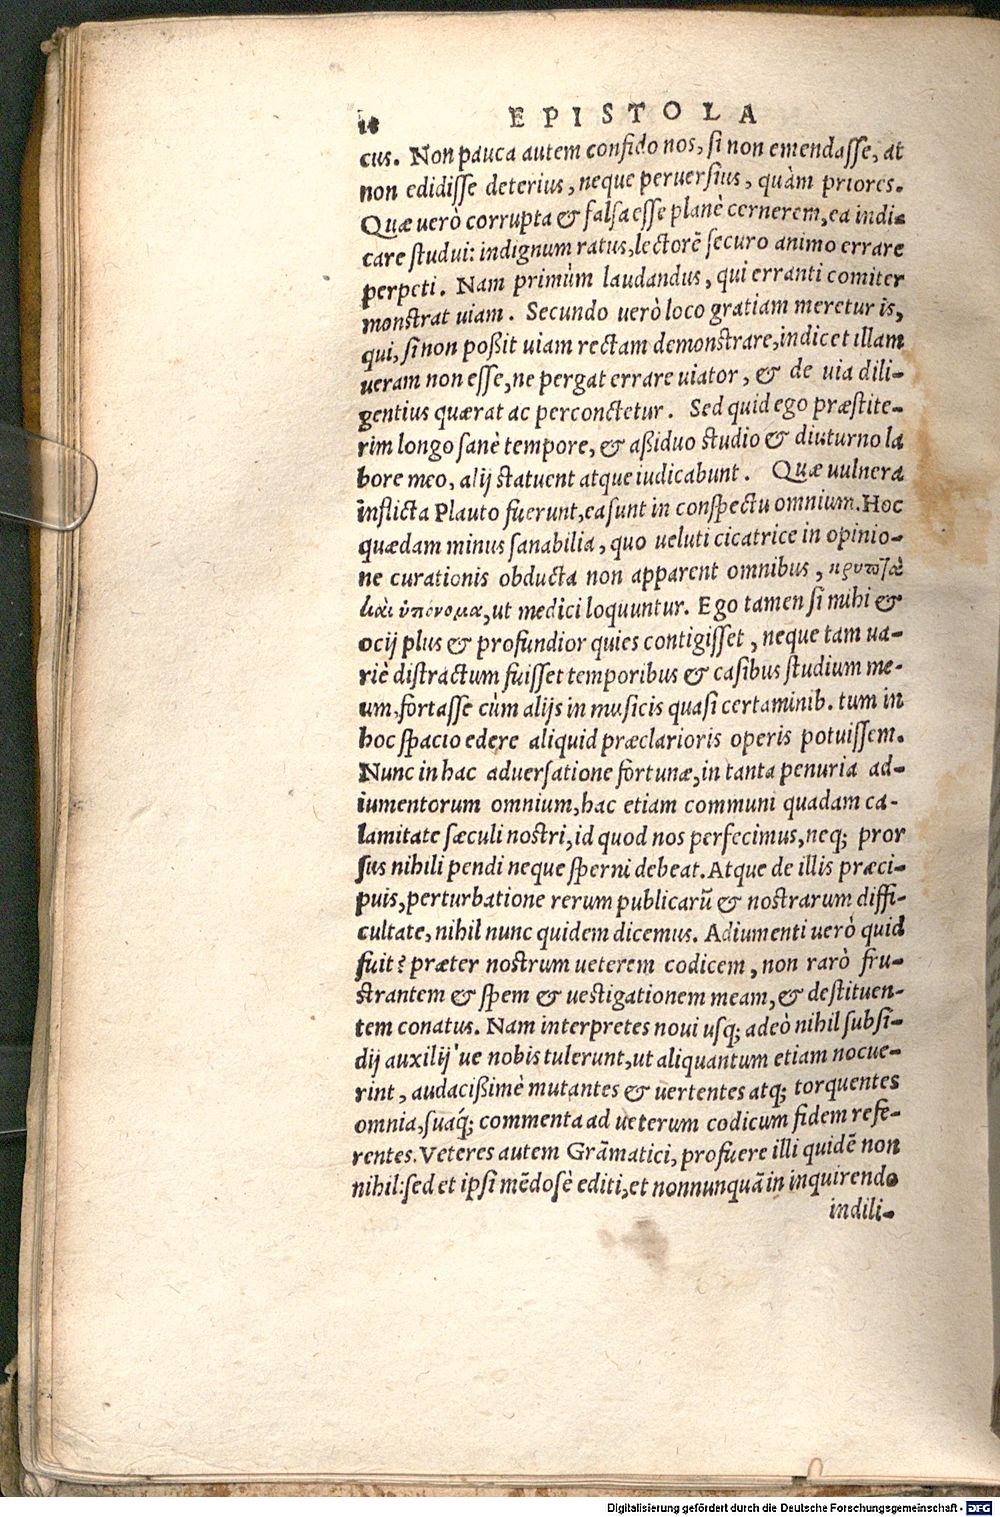 18 EPISTOLA
cus. Non pauca autem confido nos, si non emendasse, at
non edidisse deterius, neque perversius, quàm priores.
Quæ uerò corrupta & falsa esse planè cernerem, ea indi-
care studui: indignum ratus, lectorē securo animo errare
perpeti. Nam primùm laudandus, qui erranti comiter
monstrat uiam. Secundo uerò loco gratiam meretur is,
qui, si non poßit uiam rectam demonstrare, indicet illam
ueram non esse, ne pergat errare uiator, & de uia dili-
gentius quærat ac perconctetur. Sed quid ego præstite-
rim longo sanè tempore, & aßiduo studio & diuturno la
bore meo, alij statuent atque iudicabunt. Quæ uulnera
inflicta Plauto fuerunt, ea sunt in conspectu omnium. Hoc
quædam minus sanabilia, quo ueluti cicatrice in opinio-
ne curationis obducta non apparent omnibus,
ὑπόνομα, ut medici loquuntur. Ego tamen si mihi &
ocij plus & profundior quies contigisset, neque tam ua-
riè distractum fuisset temporibus & casibus studium me-
um, fortasse cùm alijs in musicis quasi certaminib. tum in
hoc spacio edere aliquid præclarioris operis potuissem.
Nunc in hac adversatione fortunæ, in tanta penuria ad-
iumentorum omnium, hac etiam communi quadam ca-
lamitate sæculi nostri, id quod nos perfecimus, neq; pror
sus nihili pendi neque sperni debeat. Atque de illis præci-
puis, perturbatione rerum publicarū & nostrarum diffi-
cultate, nihil nunc quidem dicemus. Adiumenti uerò quid
fuit? præter nostrum ueterem codicem, non rarò fru-
strantem & spem & uestigationem meam, & destituen-
tem conatus. Nam interpretes noui usq; adeò nihil subsi-
dij auxilij'ue nobis tulerunt, ut aliquantum etiam nocue-
rint, audacißimè mutantes & uertentes atq; torquentes
omnia, suaq́; commenta ad ueterum codicum fidem refe-
rentes. Veteres autem Grāmatici, profuere illi quidē non
nihil: sed et ipsi mēdosè editi, et nonnunquā in inquirendo
indili-
Digitalisierung gefördert durch die Deutsche Forschungsgemeinschaft - DFG